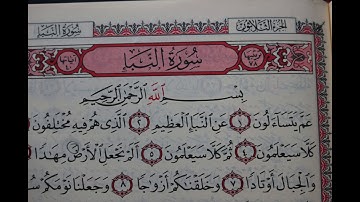 سُورَةُ النَّبَإِ
الجُزْءُ الثَّلَاثُونَ
سُورَةُ النَّبَإِ
بِسْمِ اللَّهِ الرَّحْمَٰنِ الرَّحِيمِ
عَمَّ يَتَسَاءَلُونَ ١ عَنِ النَّبَإِ الْعَظِيمِ ٢ الَّذِي هُمْ فِيهِ مُخْتَلِفُونَ
كَلَّا سَيَعْلَمُونَ ٤ ثُمَّ كَلَّا سَيَعْلَمُونَ ٥ أَلَمْ نَجْعَلِ الْأَرْضَ مِهَادًا
وَالْجِبَالَ أَوْتَادًا ٧ وَخَلَقْنَاكُمْ أَزْوَاجًا ٨ وَجَعَلْنَا نَوْمَكُمْ